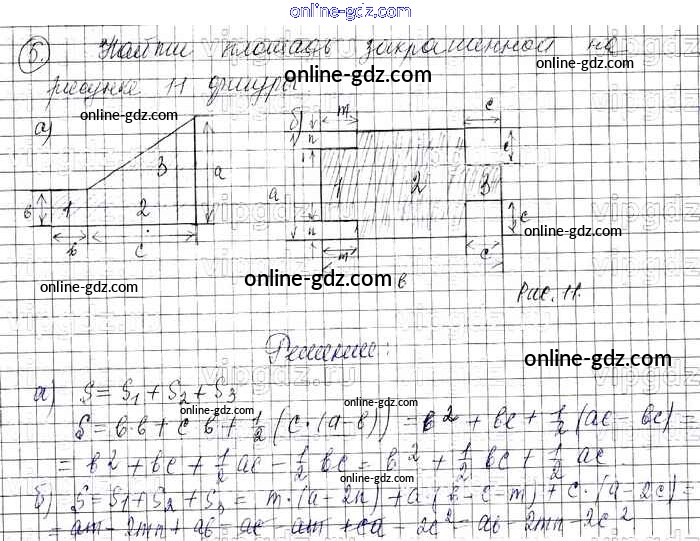 online-gdz.com
5. Найти площадь закрашенной на
рисунке 11 фигуры.
online-gdz.com
online-gdz.com
online-gdz.com
а)
б)
m
c
n
c
3
a
a
в
1
2
1
2
3
c
n
в
c
m
c
в
online-gdz.com
online-gdz.com
online-gdz.com
Рис. 11.
Решение:
online-gdz.com
а) S = S₁ + S₂ + S₃
online-gdz.com
online-gdz.com
S = в·в + c·в + 1/2 (c·(a-в)) = в² + вc + 1/2 (ac - вc) =
= в² + вc + 1/2 ac - 1/2 вc = в² + 1/2 вc + 1/2 ac
online-gdz.com
б) S = S₁ + S₂ + S₃ = m·(a-2n) + a·(в-c-m) + c·(a-2c) =
= am - 2mn + aв - ac - am + ca - 2c² = aв - 2mn - 2c²
online-gdz.com